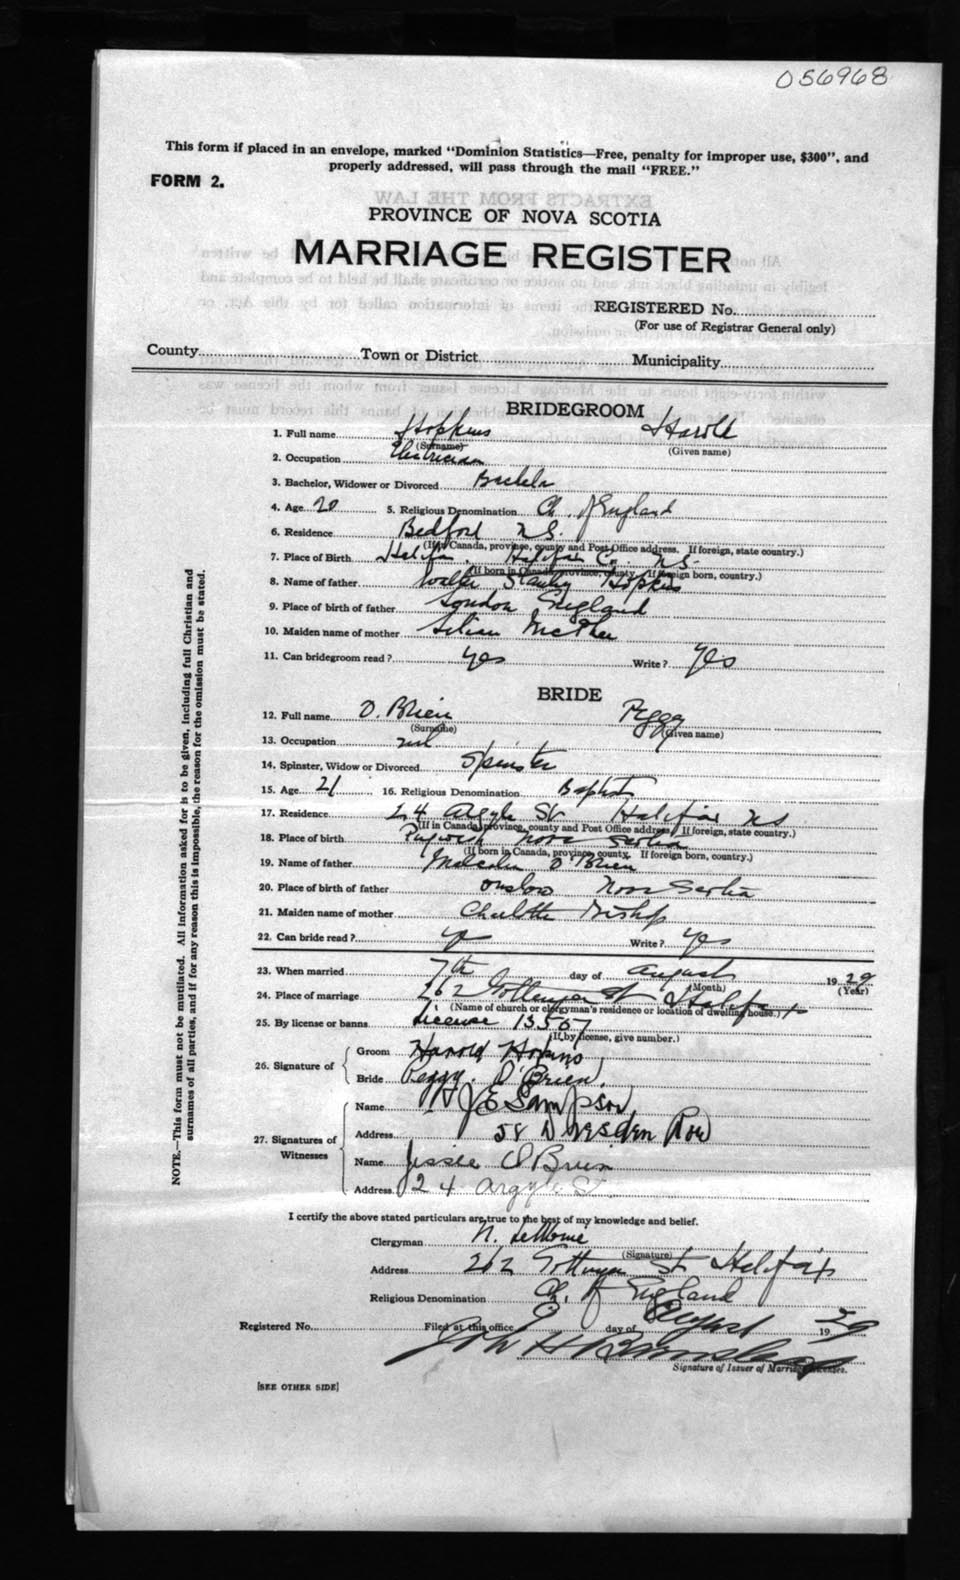 056968
This form if placed in an envelope, marked "Dominion Statistics—Free, penalty for improper use, $300", and
properly addressed, will pass through the mail "FREE."
FORM 2.
PROVINCE OF NOVA SCOTIA
MARRIAGE REGISTER
REGISTERED No.
(For use of Registrar General only)
County Town or District Municipality
BRIDEGROOM
1. Full name Hopkins Harold
(Surname) (Given name)
2. Occupation Electrician
3. Bachelor, Widower or Divorced Bachelor
4. Age 20 5. Religious Denomination Ch. of England
6. Residence Bedford N.S.
(If in Canada, province, county and Post Office address. If foreign, state country.)
7. Place of Birth Halifax. Halifax Co. N.S.
(If born in Canada, province, county. If foreign born, country.)
8. Name of father Walter Stanley Hopkins
9. Place of birth of father London England
10. Maiden name of mother Lilian McPhee
11. Can bridegroom read? Yes Write? Yes
BRIDE
12. Full name O'Brien Peggy
(Surname) (Given name)
13. Occupation nil
14. Spinster, Widow or Divorced Spinster
15. Age 21 16. Religious Denomination Baptist
17. Residence 24 Argyle St Halifax NS
(If in Canada, province, county and Post Office address. If foreign, state country.)
18. Place of birth Pugwash Nova Scotia
(If born in Canada, province, county. If foreign born, country.)
19. Name of father Malcolm O'Brien
20. Place of birth of father Onslow Nova Scotia
21. Maiden name of mother Charlotte Bishop
22. Can bride read? yes Write? yes
23. When married 7th day of August 1929
(Month) (Year)
24. Place of marriage 262 Gottingen St Halifax
(Name of church or clergyman's residence or location of dwelling house.)
25. By license or banns License 13567
(If by license, give number.)
26. Signature of
Groom Harold Hopkins
Bride Peggy O'Brien.
27. Signatures of Witnesses
Name J E Sampson
Address 58 Dresden Row
Name Jessie O'Brien
Address 24 Argyle St.
I certify the above stated particulars are true to the best of my knowledge and belief.
Clergyman N. LeMoine
(Signature)
Address 262 Gottingen St Halifax
Religious Denomination Ch. of England
Registered No. Filed at this office day of August 1929
John H
Signature of Issuer of Marriage Licenses.
[SEE OTHER SIDE]
NOTE.—This form must not be mutilated. All information asked for is to be given, including full Christian and
surnames of all parties, and if for any reason this is impossible, the reason for the omission must be stated.